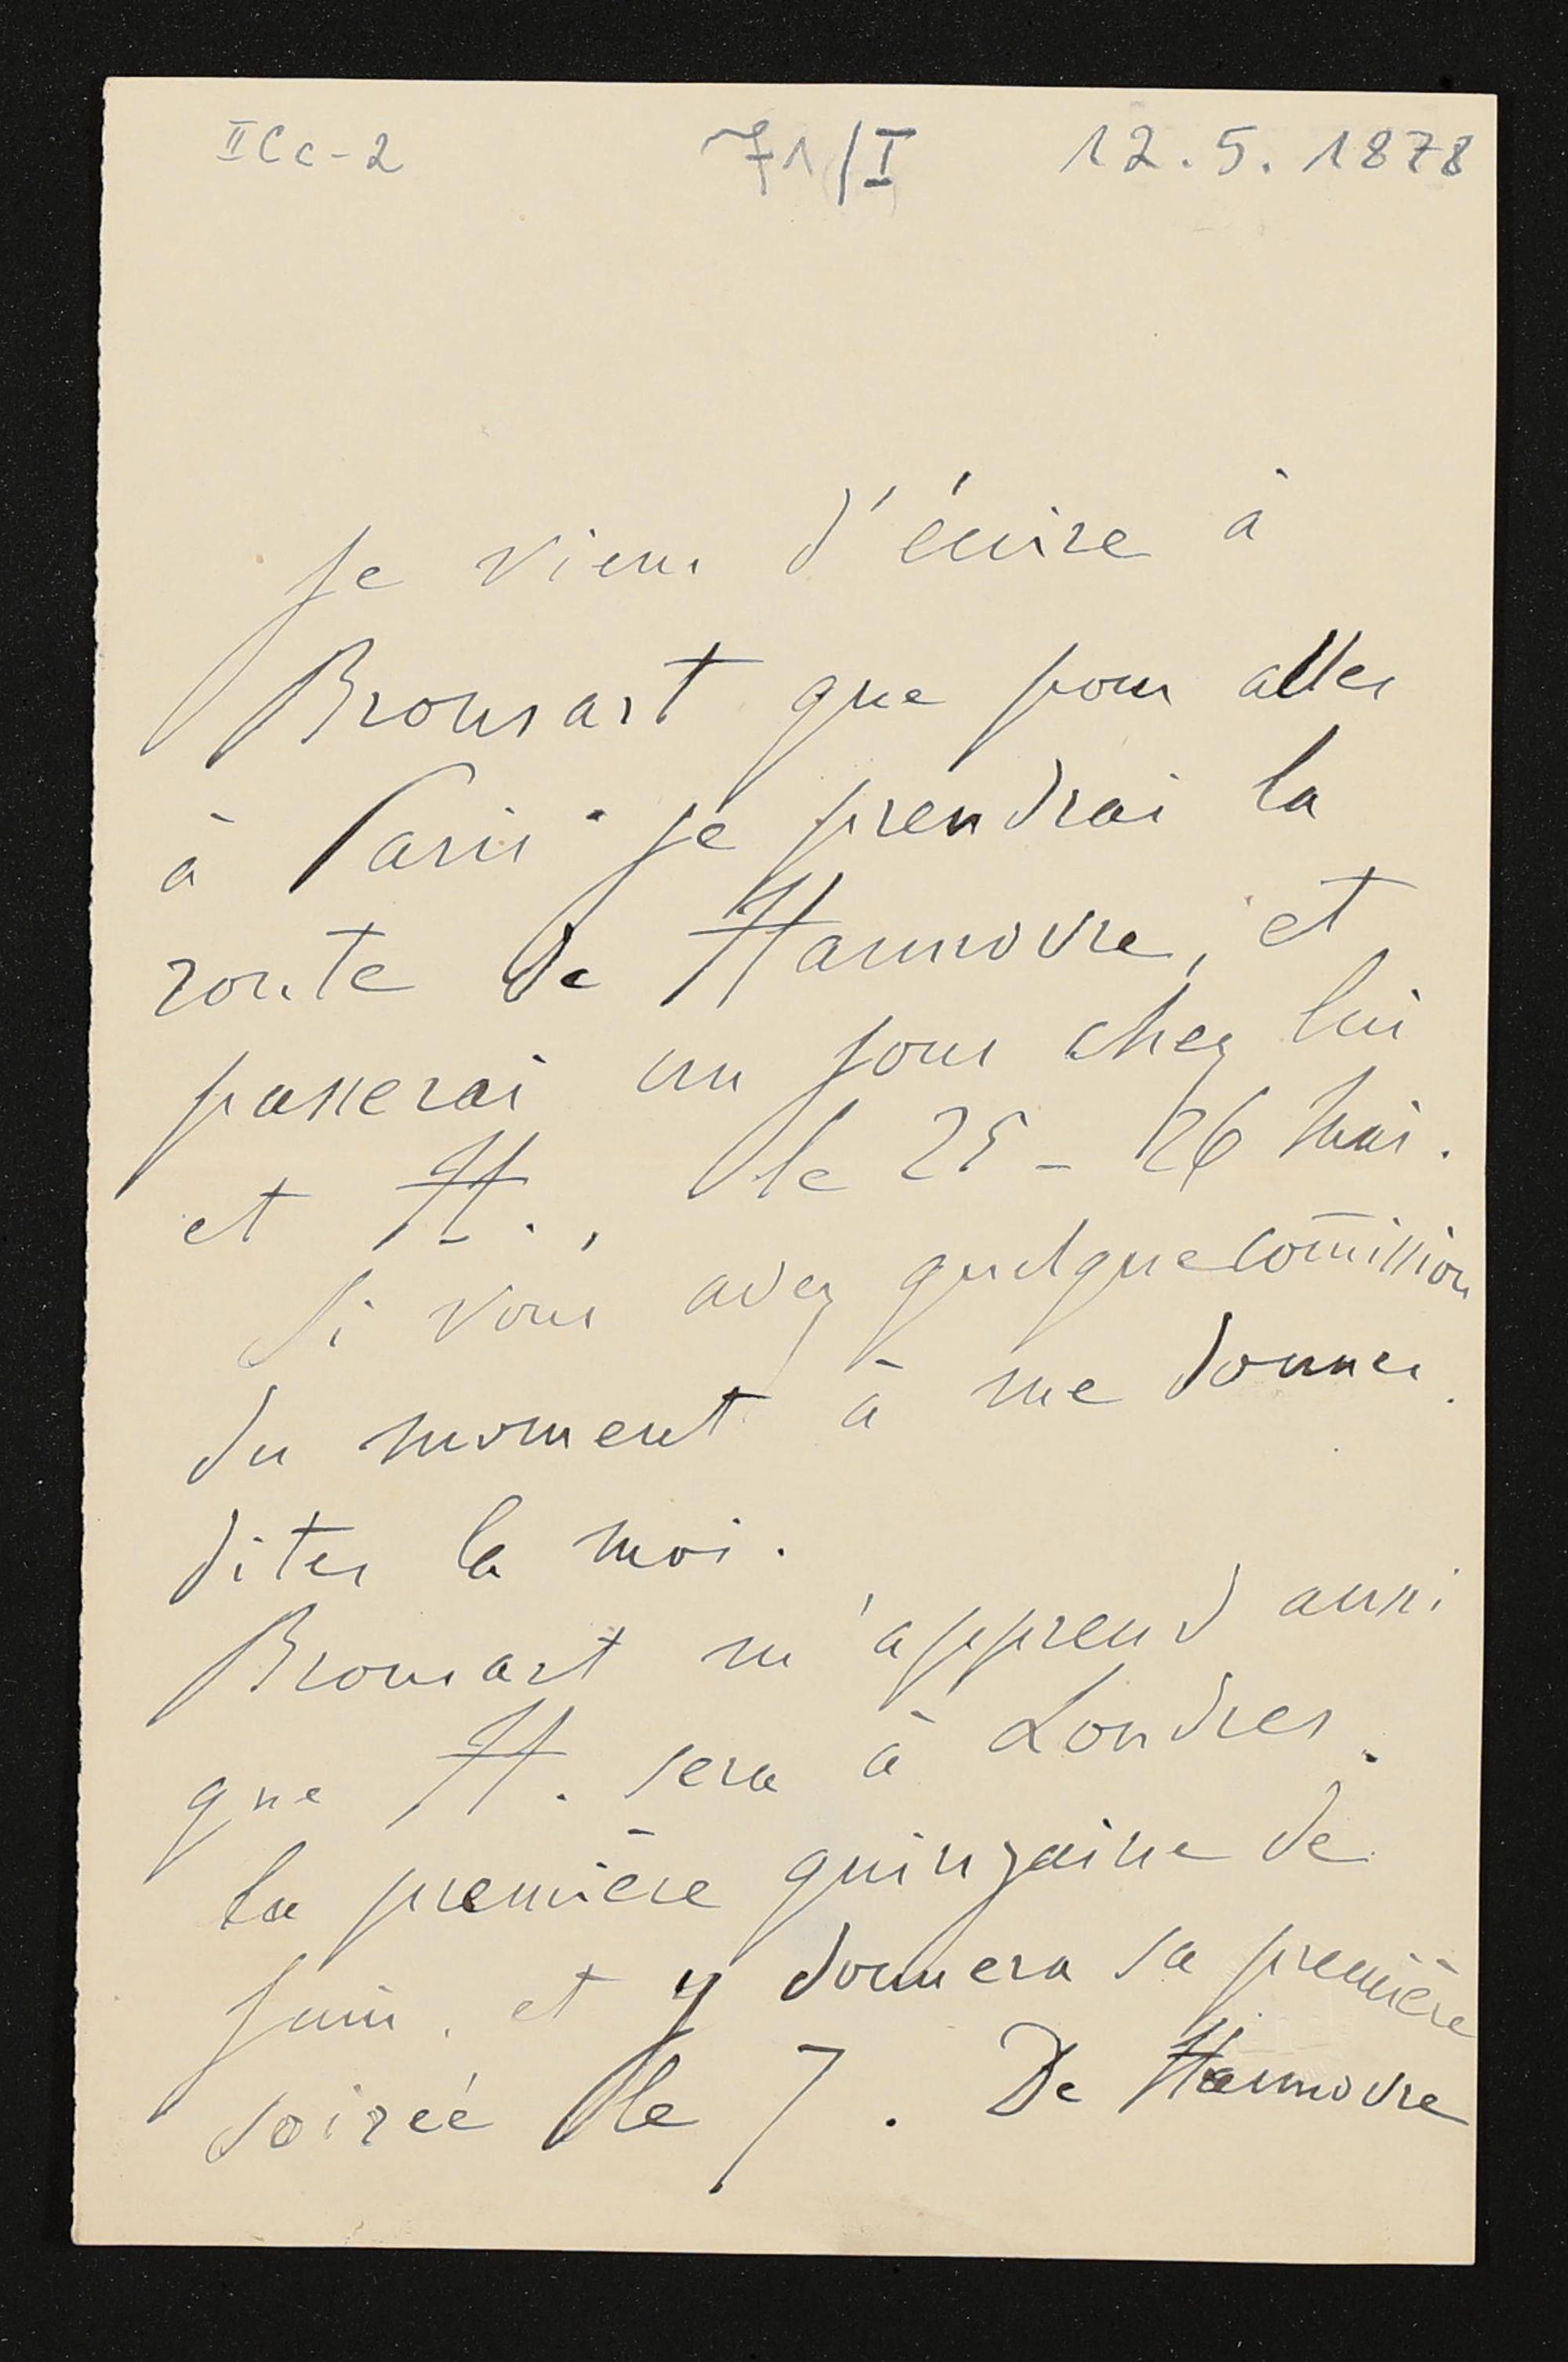 IICc-2 71/I 12.5.1878
Je viens d'écrire à
Bronsart que pour aller
à Paris je prendrai la
route de Hannovre, et
passerai un jour chez lui
et H., le 25 - 26 Mai.
Si vous avez quelque com̄ission
du moment à me donner
dites la moi.
Bronsart m'apprend aussi
que H. sera à Londres
la première quinzaine de
Juin, et y donnera sa première
soirée le 7. De Hannovre